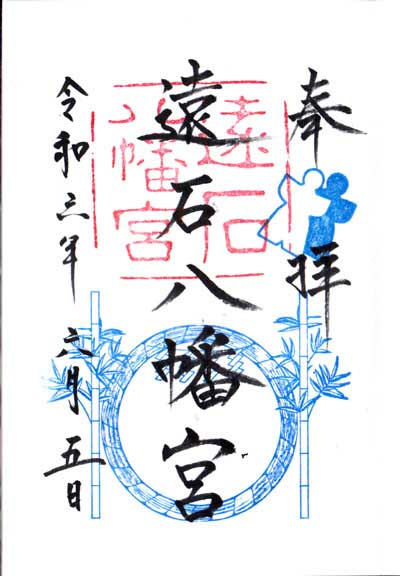 奉拝
遠石八幡宮
遠石
八幡宮
令和三年六月五日